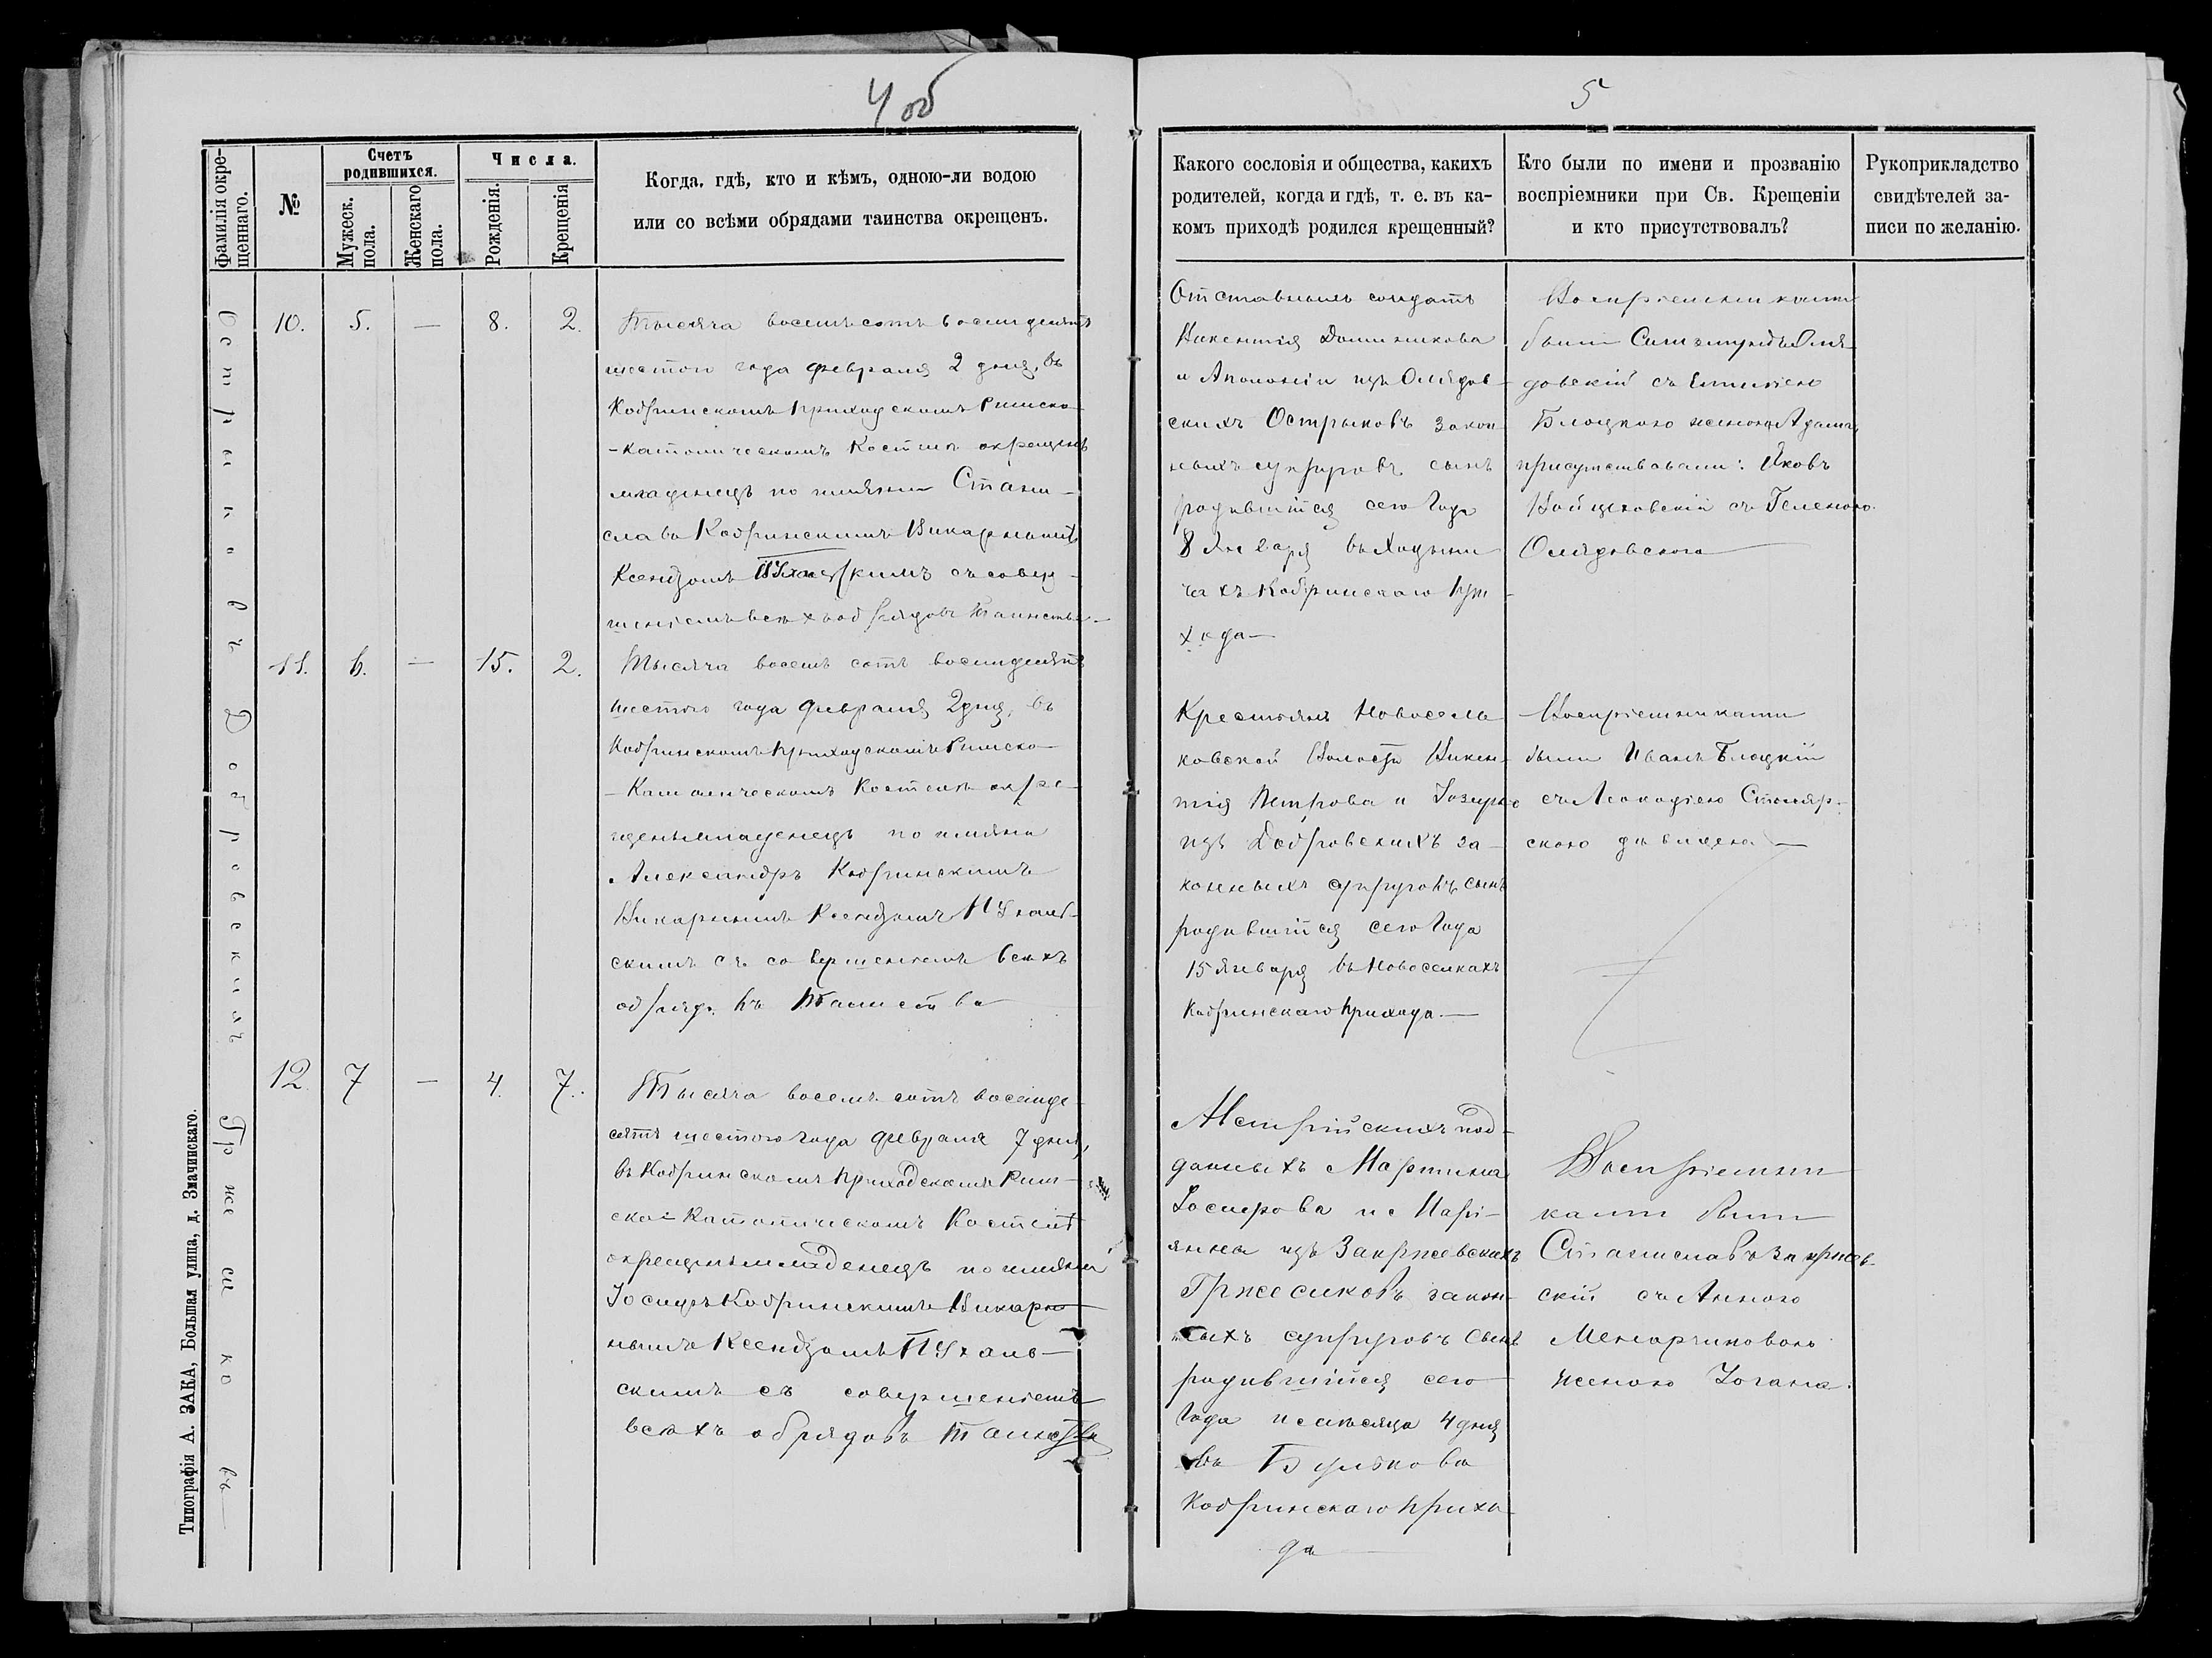 4 об
5
Фамилія окре-
щеннаго.
№
Счетъ
родившихся.
Мужеск.
пола.
Женскаго
пола.
Числа.
Рожденія.
Крещенія
Когда, гдѣ, кто и кѣмъ, одною-ли водою
или со всѣми обрядами таинства окрещенъ.
Какого сословія и общества, какихъ
родителей, когда и гдѣ, т. е. въ ка-
комъ приходѣ родился крещенный?
Кто были по имени и прозванію
воспріемники при Св. Крещеніи
и кто присутствовалъ?
Рукоприкладство
свидѣтелей за-
писи по желанію.
Острыковъ
10. 5. — 8. 2.
Тысяча восемьсотъ восемдесятъ
шестого года февраля 2 дня, въ
Кобринскомъ приходскомъ Римско
-католическомъ Костелѣ окрещенъ
младенецъ по имяни Стани-
славъ Кобринскимъ Викарнымъ
Ксендзомъ съ совер-
шеніемъ всѣхъ обрядовъ Таинства
Отставнымъ солдатъ
Викентія Доминикова
и Аполоніи изъ Олядов-
скихъ Острыковъ закон-
ныхъ супруговъ сынъ
родившійся сего Года
8 Января въ
чахъ Кобринскаго при-
хода—
Воспріемниками
были Сигизмундъ Оля-
довскій съ Емиліею
Блоцкою женою Адама,
присутствовали: Яковъ
Войцеховскій съ Геленою
Олядовскою
Добровскихъ
11. 6. — 15. 2.
Тысяча восемь сотъ восемдесятъ
шестого года февраля 2 дня, въ
Кобринскомъ приходскомъ Римско-
-Католическомъ Костелѣ окре-
щенъ младенецъ по имяни
Александръ Кобринскимъ
Викарнымъ Ксендзомъ П Ухань-
скимъ съ совершеніемъ всѣхъ
обрядовъ Таинства
Крестьянъ Новосел-
ковской Волости Викен-
тія Петрова и Іозефы
изъ Добровскихъ за-
конныхъ супруговъ сынъ
родившійся сего Года
15 Января въ Новоселкахъ
Кобринскаго прихода.—
Воспріемниками
были Иванъ Блоцкій
съ Леокадіею Столяр-
скою дѣвицею —
Гржесиковъ—
12. 7 — 4. 7.
Тысяча восемь сотъ восемде-
сятъ шестого года февраля 7 дня,
въ Кобринскомъ приходскомъ Рим-
ско-Католическомъ Костелѣ
окрещенъ младенецъ по имяни
Іосифъ Кобринскимъ Викар-
нымъ Ксендзомъ П Ухань-
скимъ съ совершеніемъ
всѣхъ обрядовъ Таинства
Австрійскихъ под-
данныхъ Мартина
Іосифова и Марі-
янны изъ Закржевскихъ
Гржесиковъ закон-
ныхъ супруговъ сынъ
родившійся сего
Года и мѣсяца 4 дня
въ Бульково
Кобринскаго прихо-
да
Воспріемни-
ками были
Станиславъ Закржев-
скій съ Анною
женою Іогана.
Типографія А. ЗАКА, Большая улица, д. Значинскаго.